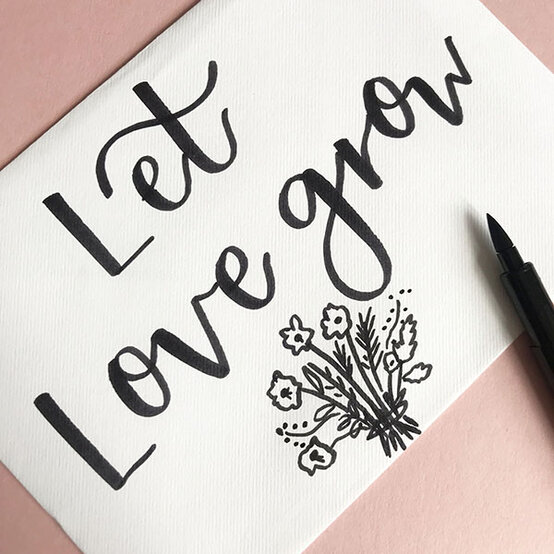 Let
Love grow